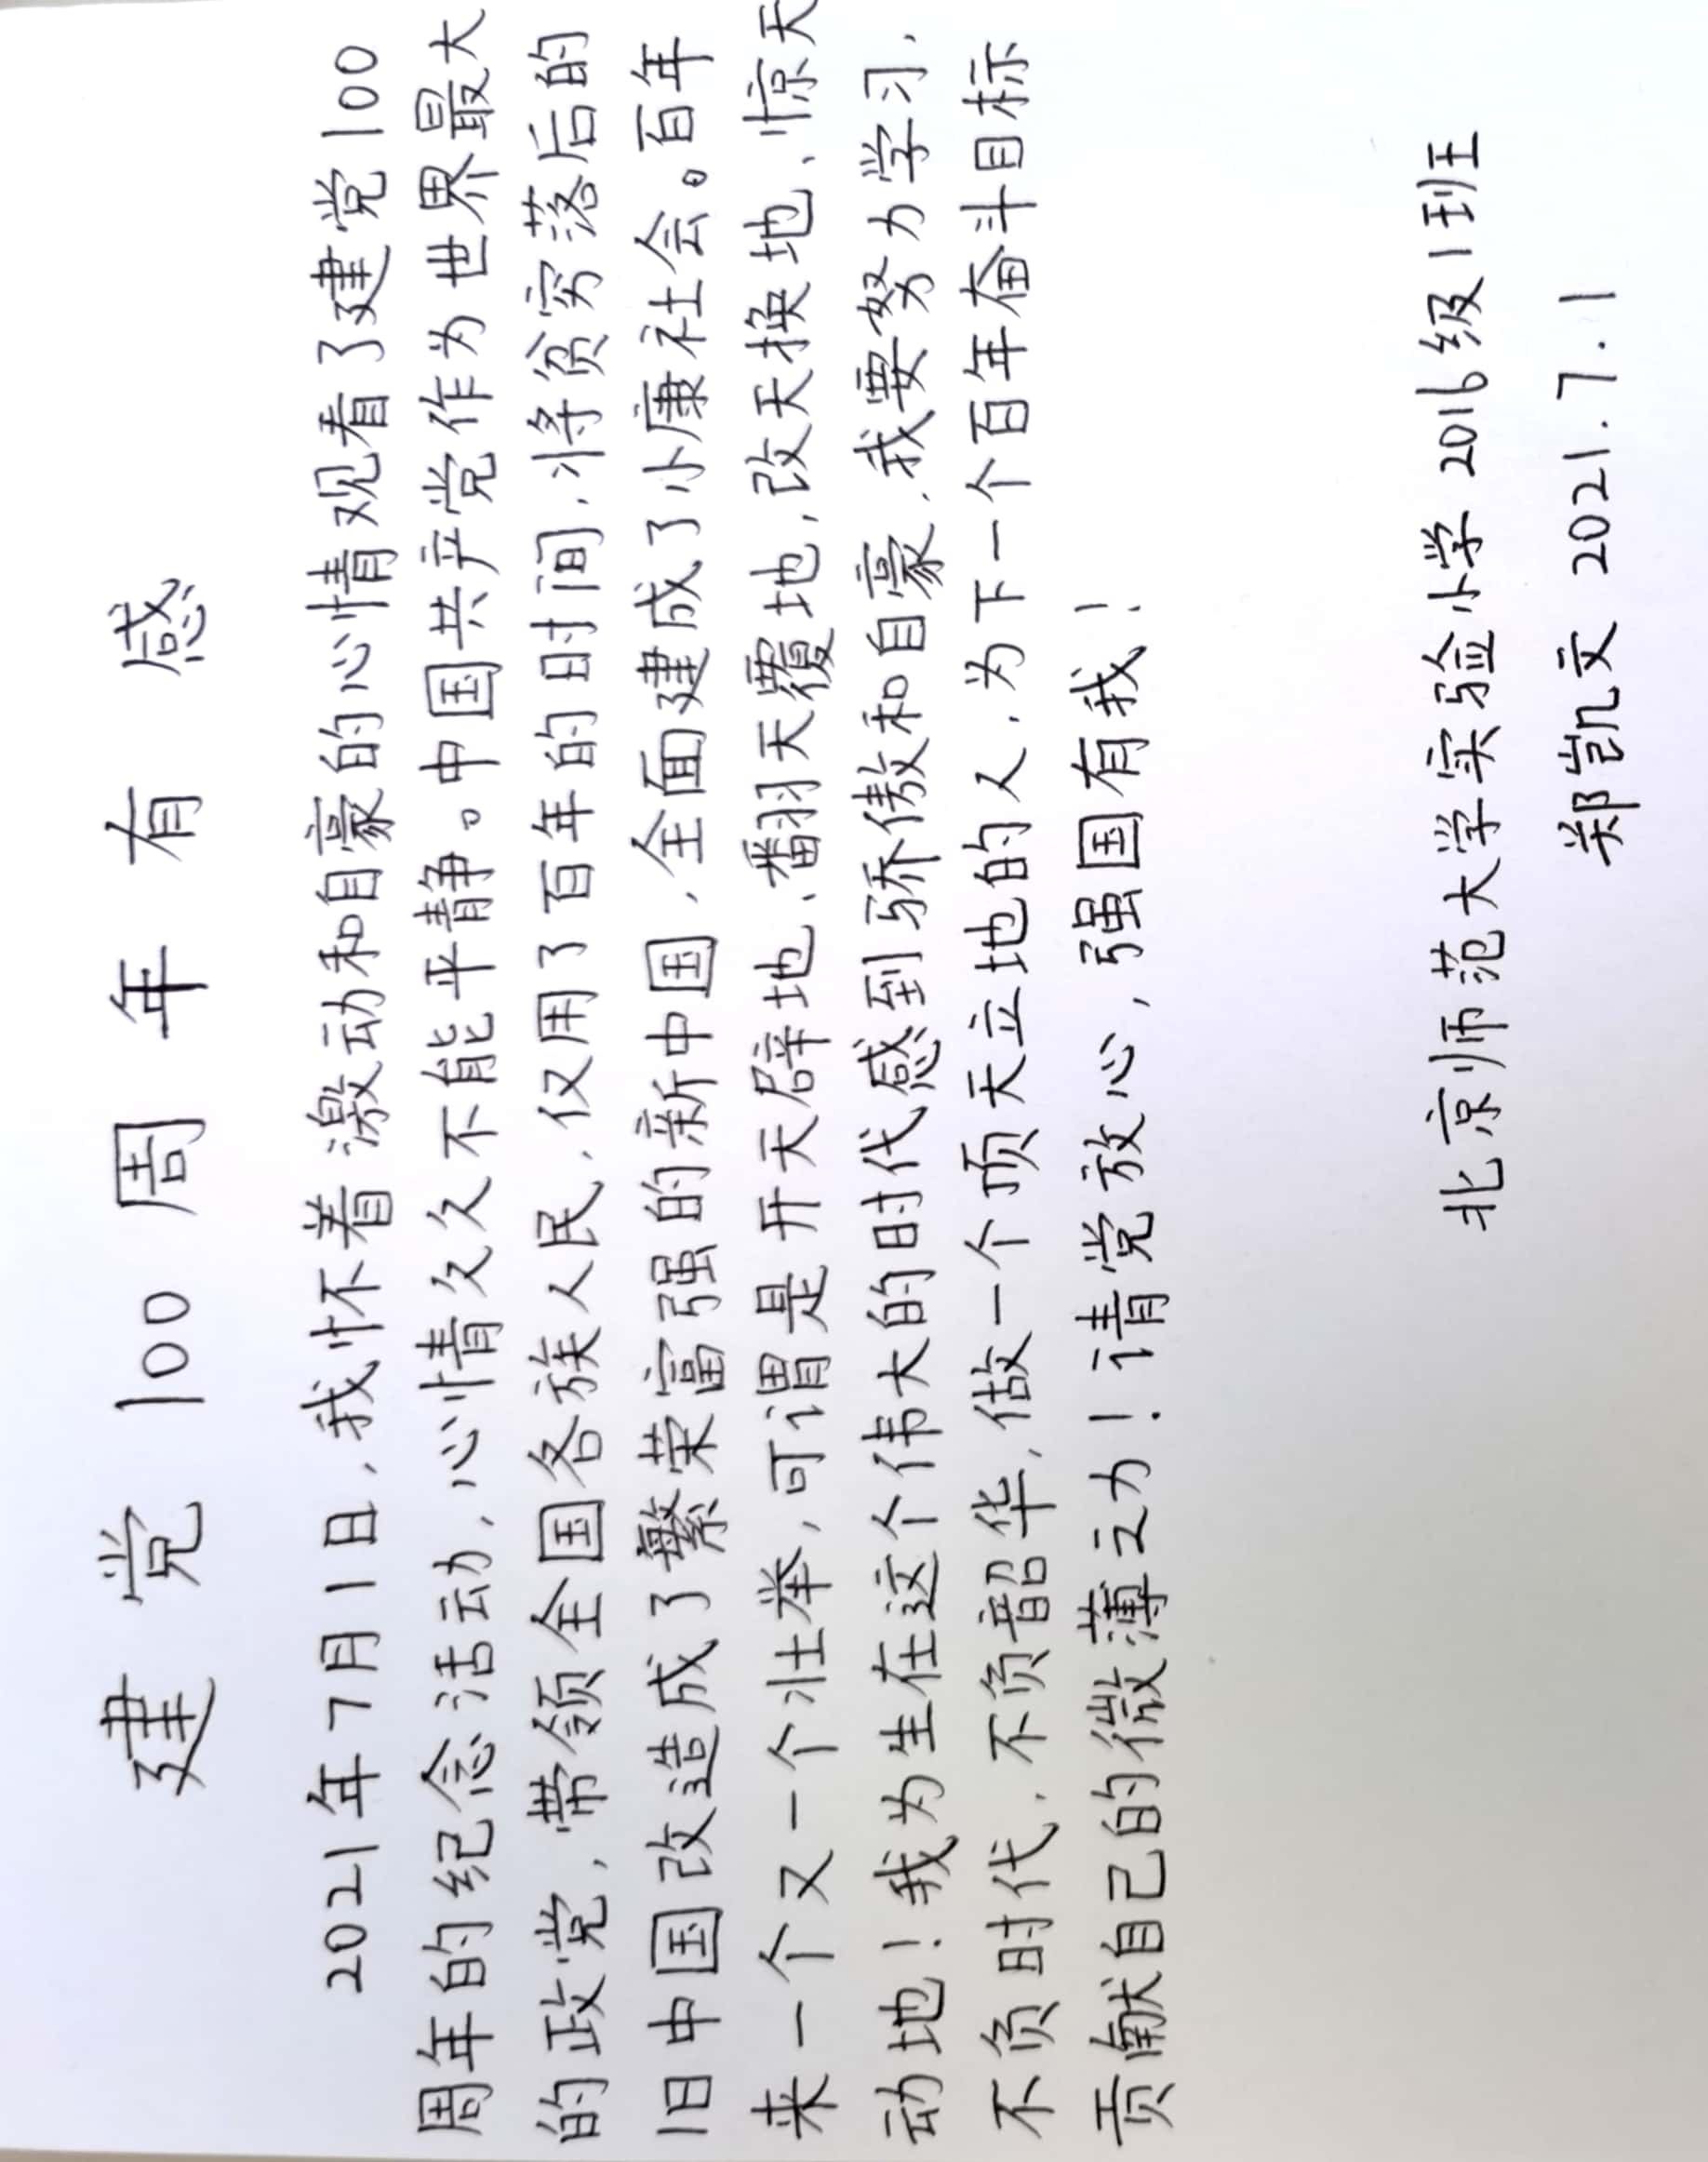 建党100周年有感
2021年7月1日,我怀着激动和自豪的心情观看了建党100
周年的纪念活动,心情久久不能平静。中国共产党作为世界最大
的政党,带领全国各族人民,仅用了百年的时间,将贫穷落后的
旧中国改造成了繁荣富强的新中国,全面建成了小康社会。百年
来一个又一个壮举,可谓是开天辟地、翻天覆地,改天换地、惊天
动地!我为生在这个伟大的时代感到骄傲和自豪,我要努力学习,
不负时代,不负韶华,做一个顶天立地的人,为下一个百年奋斗目标
贡献自己的微薄之力!请党放心,强国有我!
北京师范大学实验小学2016级1班
郑凯文 2021.7.1